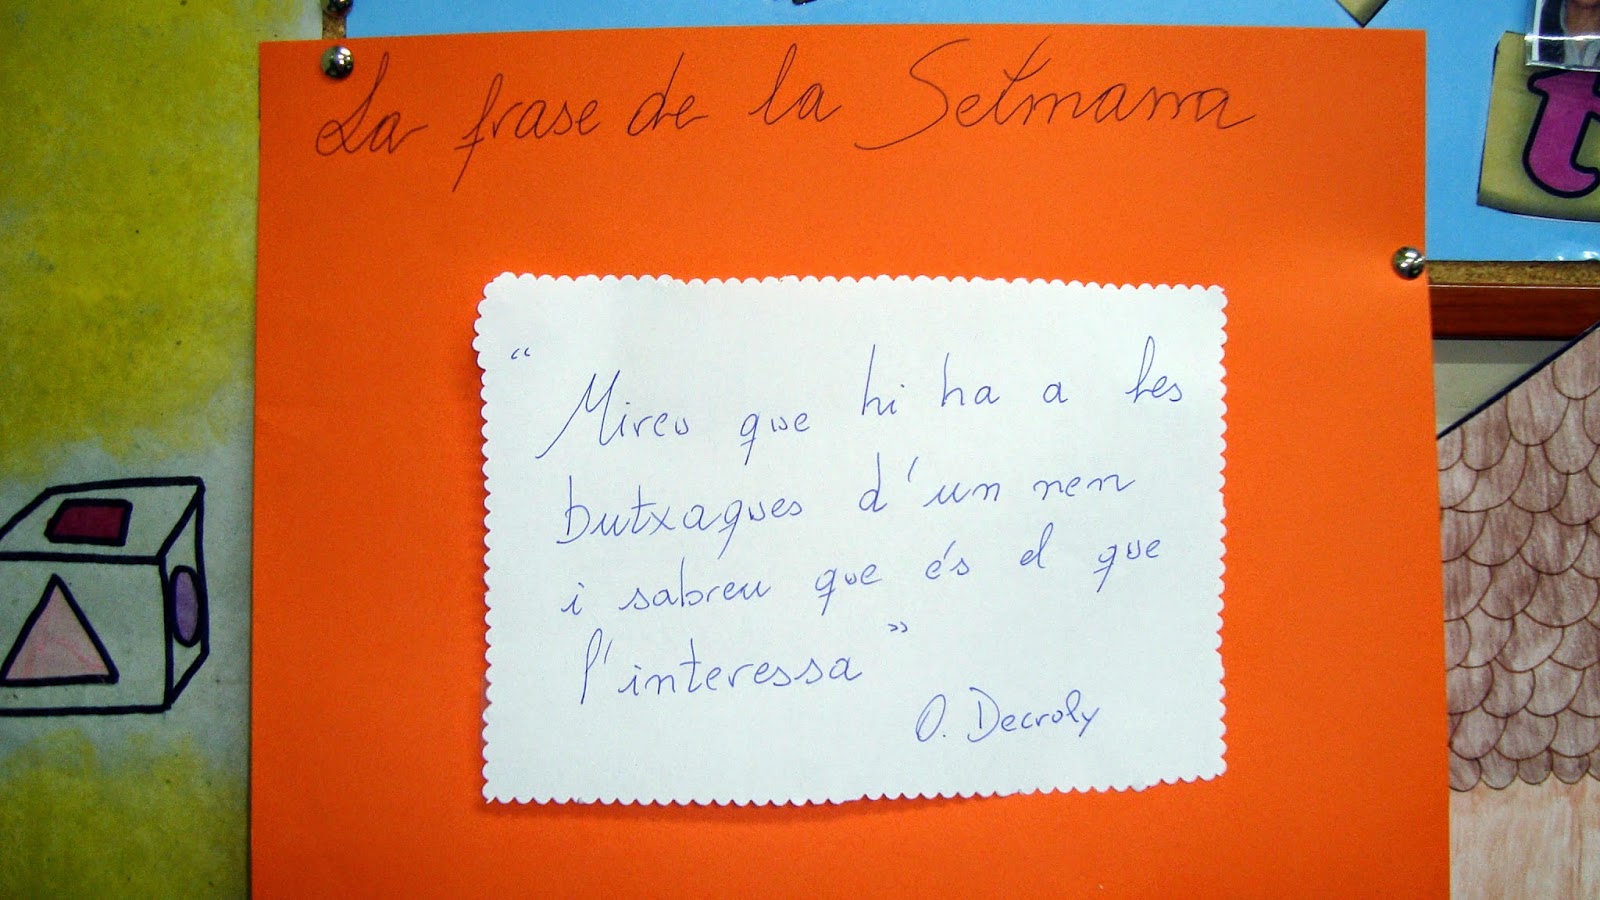 La frase de la Setmana
t
“Mireu que hi ha a les
butxaques d'un nen
i sabreu que és el que
l'interessa”
O. Decroly